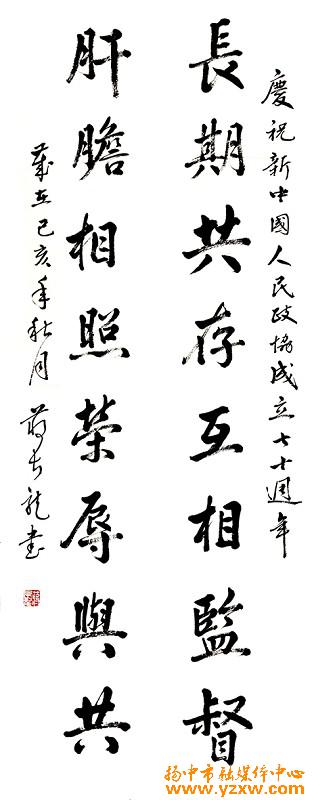 慶祝新中國人民政協成立七十週年
長期共存互相監督
肝膽相照榮辱與共
歲在己亥年秋月 書
扬中市融媒体中心
www.yzxw.com